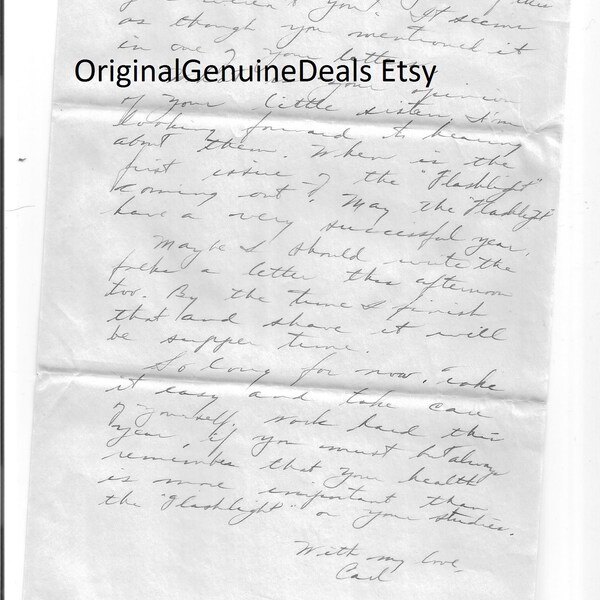 weren't you? It seems
as though you mentioned it
in one of your letters.
OriginalGenuineDeals Etsy
your opinion
of your little sister, I'm
looking forward to hearing
about them. When is the
first issue of the "Flashlight"
coming out? May the "Flashlight"
have a very successful year.
Maybe I should write the
folks a letter this afternoon
too. By the time I finish
that and shave it will
be supper time.
So long for now, take
it easy and take care
of yourself. Work hard this
year, if you must but always
remember that your health
is more important than
the "Flashlight" or your studies.
With my love,
Carl